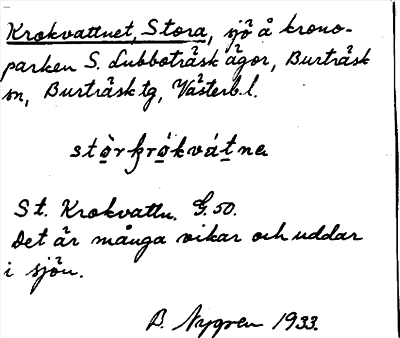 Krokvattnet, Stora, sjö å krono-
parken S. Lubboträsk ägor, Burträsk
sn, Burträsk tg, Västerb. l.
stò̱rkró̱kváṯna
St. Krokvattn. G.50.
Det är många vikar och uddar
i sjön.
B. Nygren 1933.